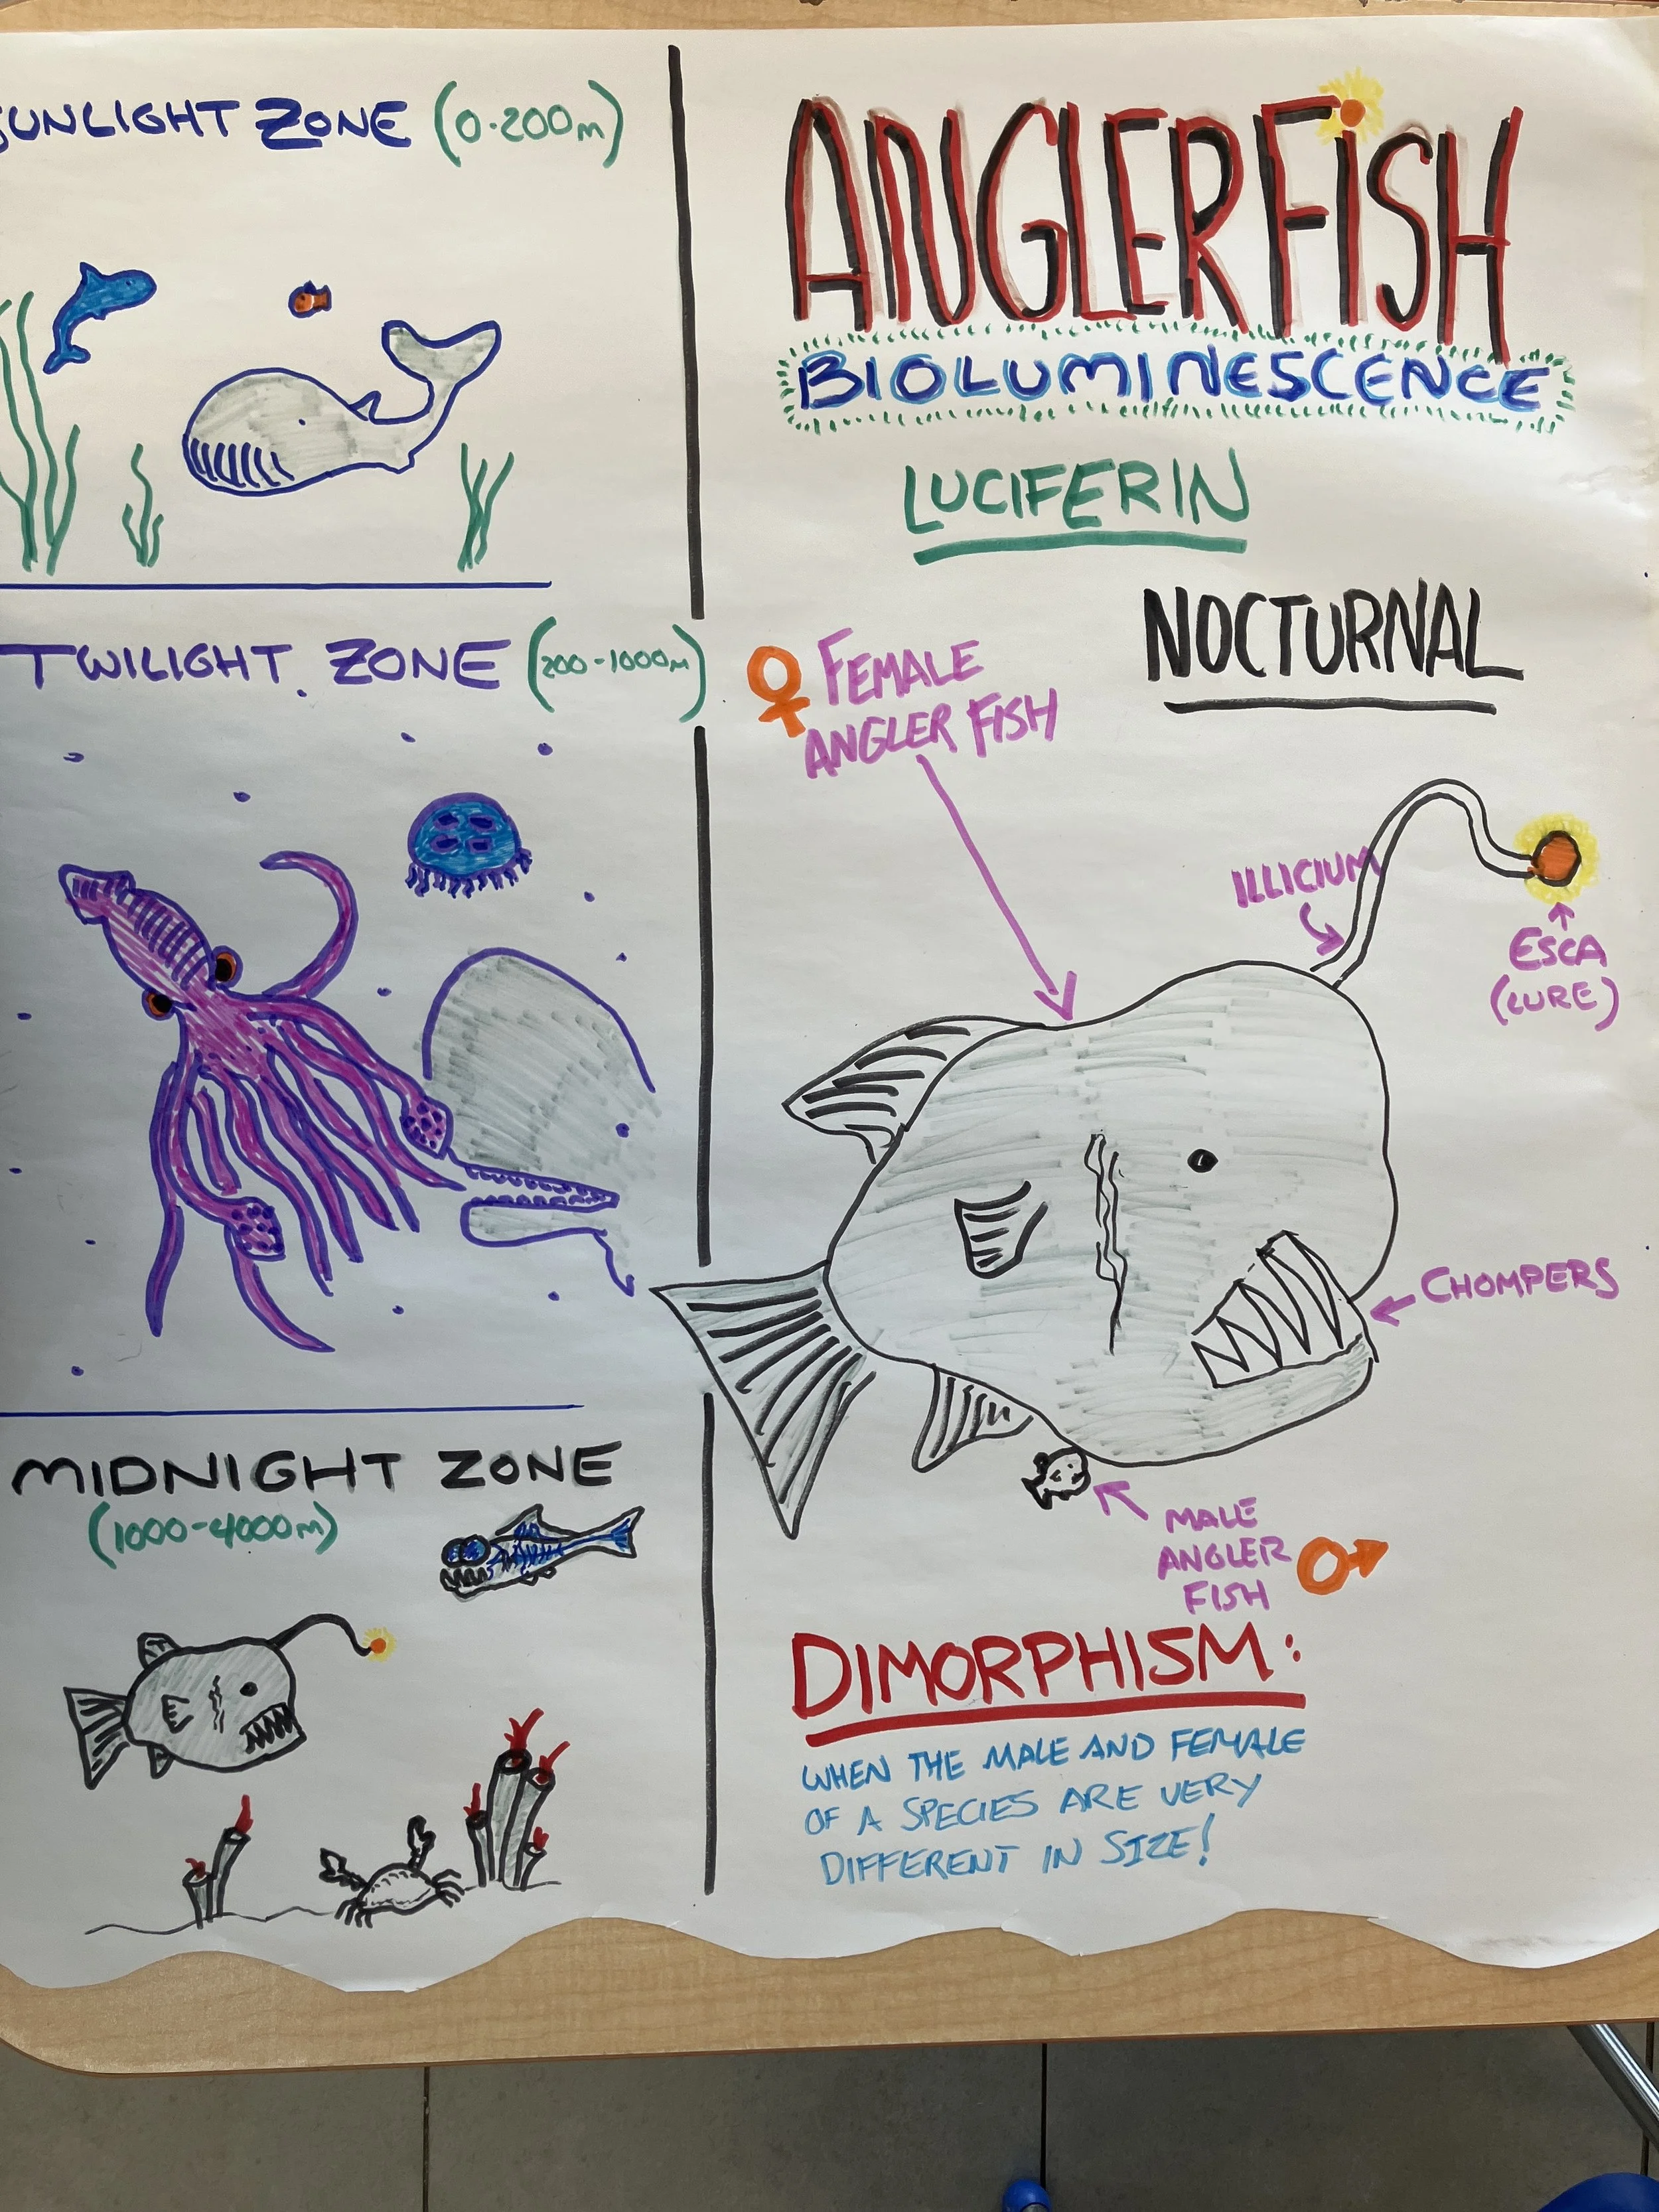 SUNLIGHT ZONE (0-200m)
TWILIGHT ZONE (200-1000m)
MIDNIGHT ZONE
(1000-4000m)
ANGLERFiSH
BIOLUMINESCENCE
LUCIFERIN
NOCTURNAL
♀ FEMALE
ANGLER FISH
ILLICIUM
ESCA
(LURE)
CHOMPERS
MALE
ANGLER
FISH ♂
DIMORPHISM:
WHEN THE MALE AND FEMALE
OF A SPECIES ARE VERY
DIFFERENT IN SIZE!